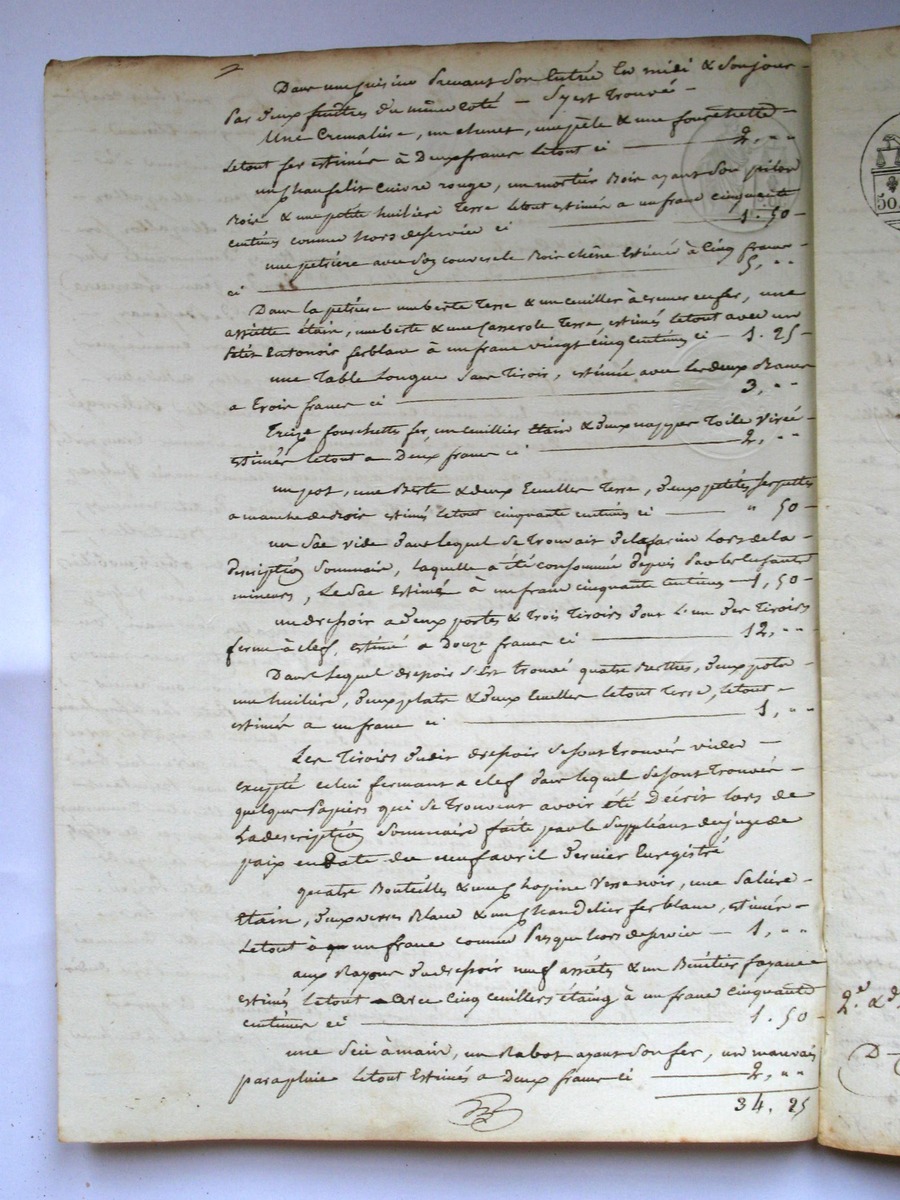 Dans une Cuisine Prenant Son Entrée En midi & Son jour
Par deux fenêtres du même Coté — S'y est Trouvé —
Une Cremalière, un chenet, une pèle & une fourchette
Letout fer estimée à Deux francs Letout ci — 2, " "
un Chaufelit Cuivre rouge, un mortier Bois ayant Son pilon
Bois & une petite huilière Terre Letout estimés a un franc cinquante
Centimes comme hors de service ci — 1. 50
une petrière avec Son couvercle Bois chêne Estimée à Cinq francs
ci — 5, " "
Dans la petrière une berte Terre & un cuiller à ecumer en fer, une
assiette étain, une berte & une Casserole Terre, estimés Letout avec un
Petit Entonoir ferblanc à un franc vingt cinq Centimes ci — 1. 25
une Table Longue Sans Tiroir, estimée avec Les deux Bancs
a Trois francs ci — 3, " "
Treize fourchettes fer, un cuillier Etain & deux nappes Toile Virée
estimés Letout a Deux francs ci — 2, " "
un pot, une Berte & deux Ecuelles Terre, deux petites Serpettes
a manche de Bois estimés Letout cinquante centimes ci — " 50
un Sac vide dans Lequel Se Trouvait de la farine Lors de la
Description Sommaire, laquelle a été consommée depuis par les enfants
mineurs, Le Sac Estimé à un franc cinquante Centimes — 1, 50
un dressoir a deux portes & Trois Tiroirs dont L'un des Tiroirs
ferme à clef, estimé a Douze francs ci — 12, " "
Dans Lequel dressoir S'est trouvé quatre Berthes, deux pots
une huilière, deux plats & deux Ecuelles Letout Terre, Letout
estimés a un franc ci — 1, " "
Les Tiroirs dudit dressoir Se Sont trouvés vides —
excepté celui fermant a clef dans lequel Se Sont Trouvés
quelques Papiers qui Se Trouvent avoir été Décrit lors de
La description Sommaire faite par le Suppléant du juge de
paix en Date du neuf avril dernier Enregistré
quatre Bouteilles & une Chopine Verre noir, une Salière
Etain, deux verres Blanc & un Chandelier fer blanc, estimés
Letout à un franc comme Presque hors de service — 1, " "
aux Rayons du dressoir neuf assiéts & un Bénitier fayance
estimés Letout avec Cinq cuillers étaing à un franc cinquante
centimes ci — 1. 50
une Scie à main, un Rabot ayant Son fer, un mauvais
parapluie Letout Estimés a Deux francs ci — 2, " "
34. 25
50
2.e & d
D